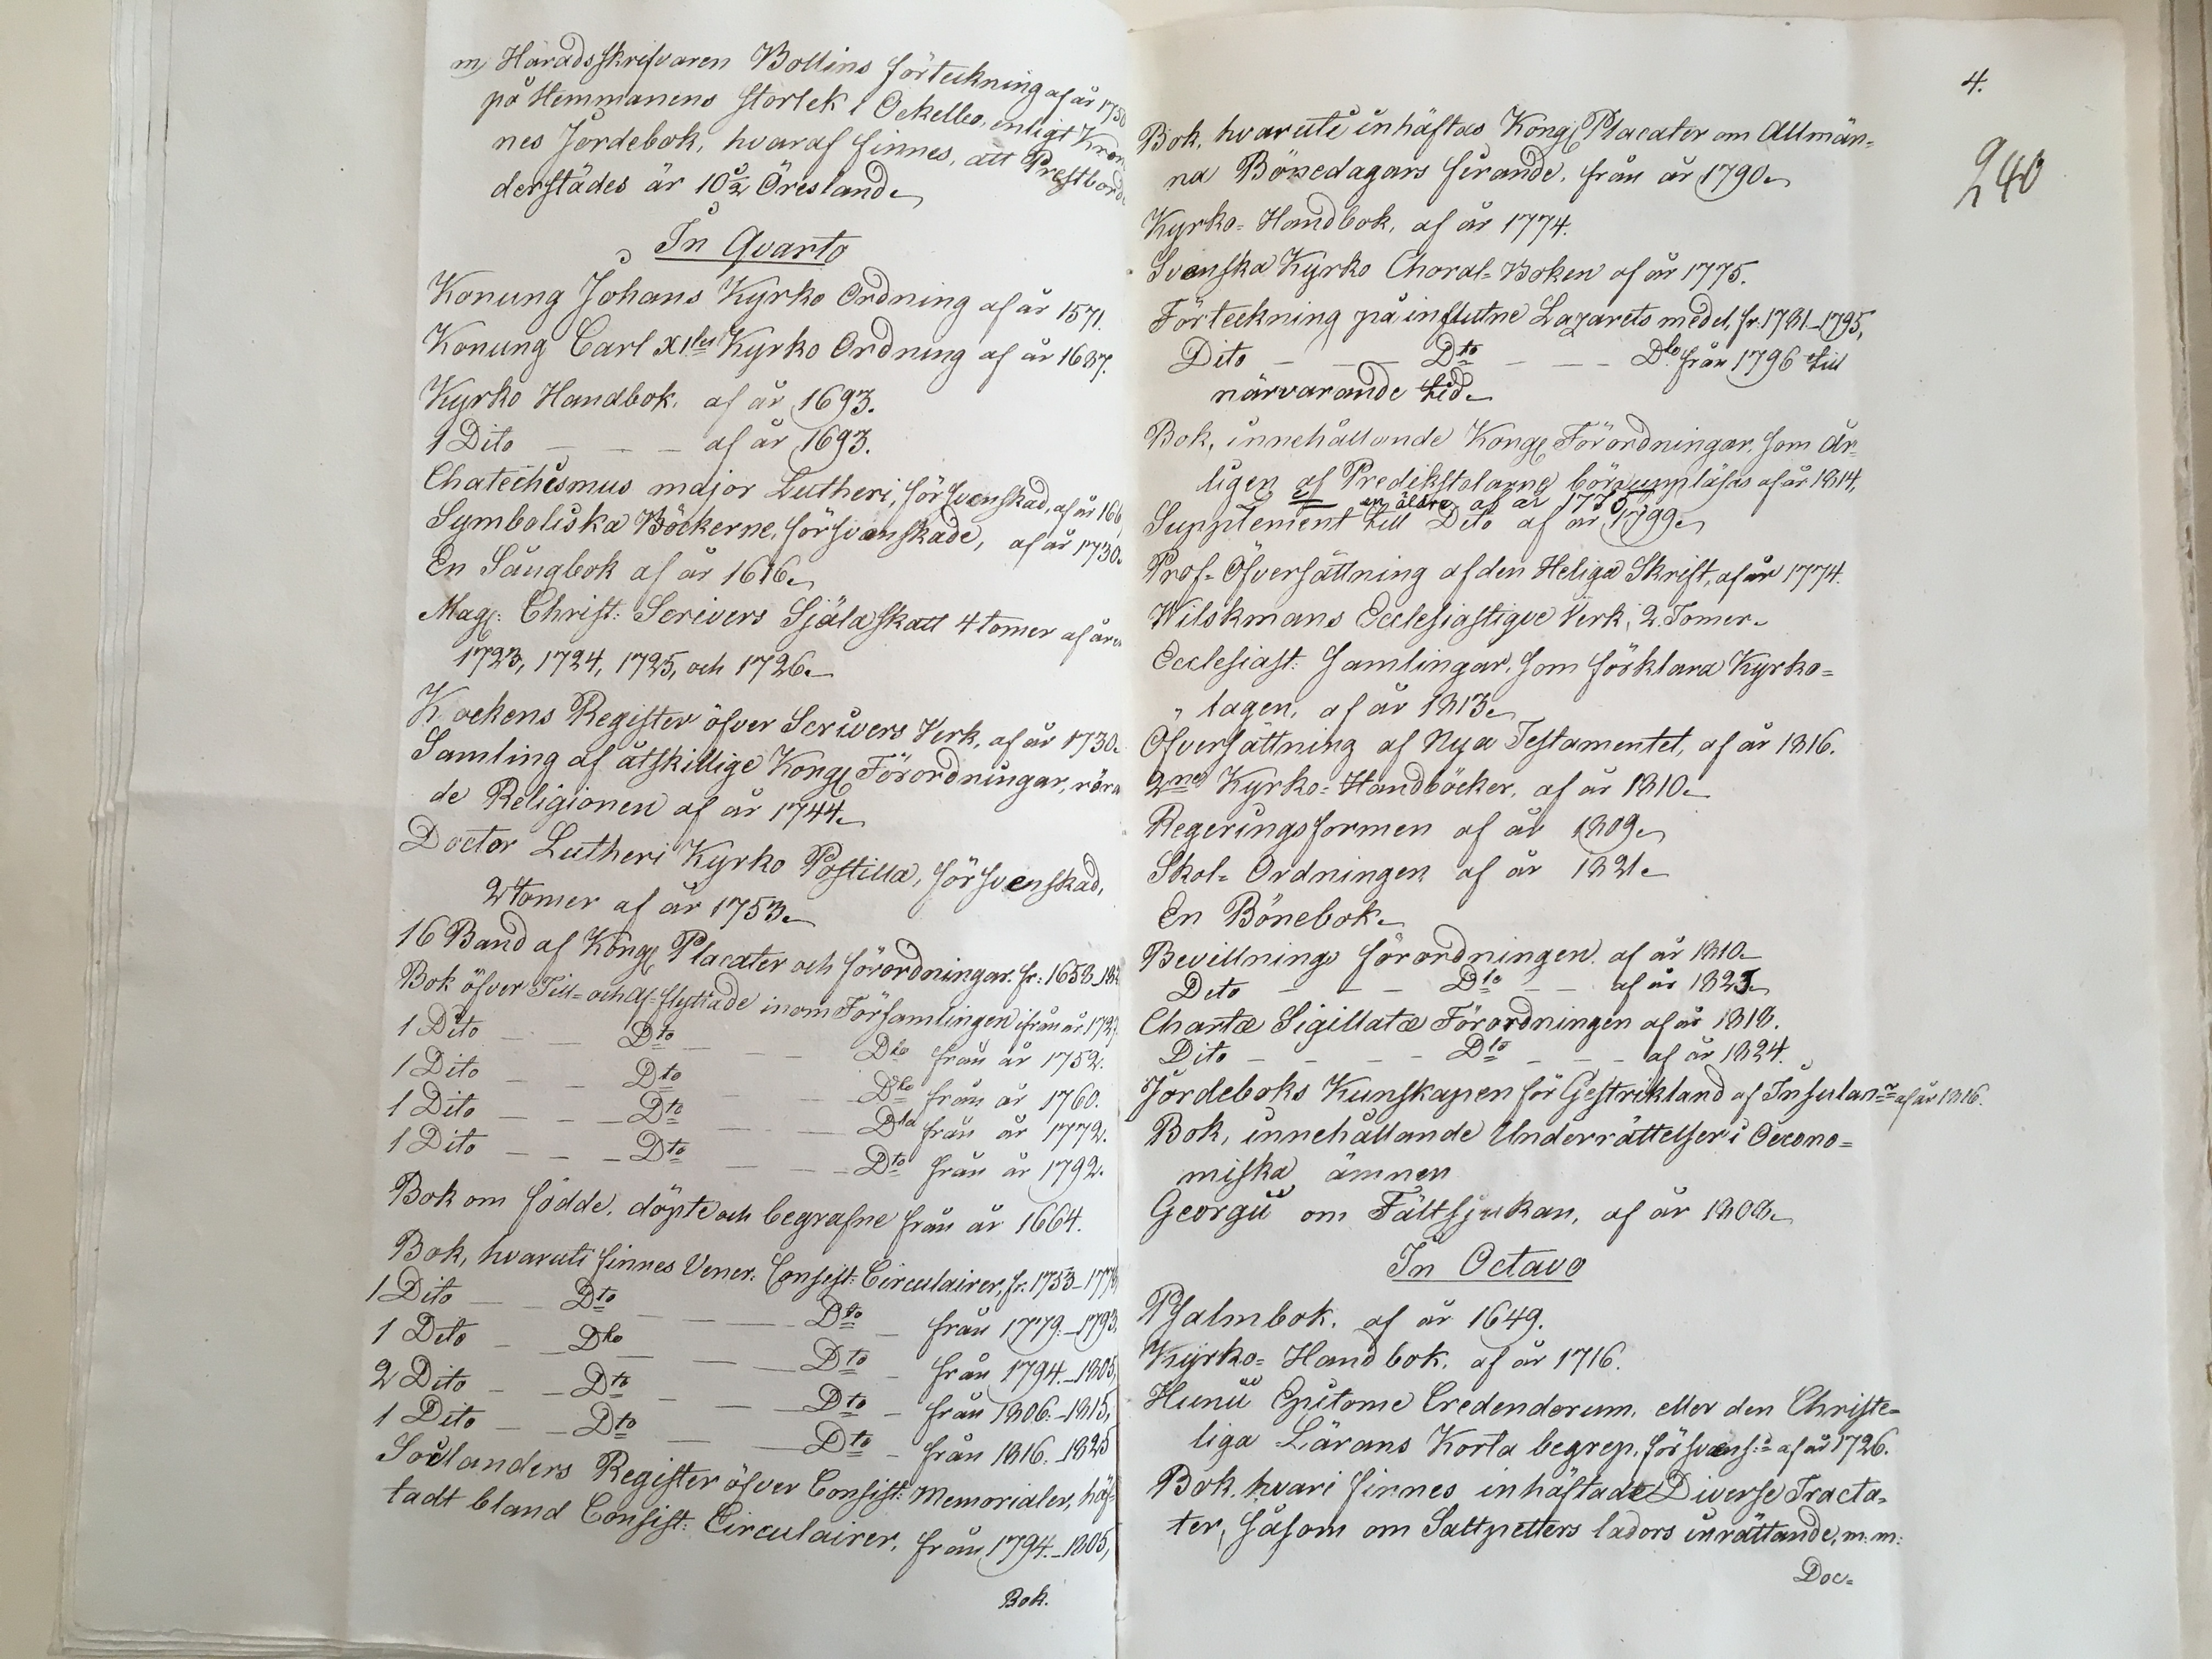 m, Häradsskrifvaren Bollins förteckning af år 1750
på Hemmanens storlek i Ockelbo, enligt Kron
nes Jordebok, hvaraf finnes, att Prestbord
derstädes är 10 5/2 Öresland.
In Qvarto
Konung Johans Kyrko Ordning af år 1571.
Konung Carl XI:tes Kyrko Ordning af år 1687.
Kyrko Handbok, af år 1693.
1 Dito — — — af år 1693.
Chatechismus major Lutheri, försvenskad, af år 166
Symboliska Böckerne, försvenskade, af år 1730.
En Sångbok af år 1616.
Mag: Christ: Scrivers Själaskatt 4 tomer af åren
1723, 1724, 1725, och 1726.
Kockens Register öfver Scrivers Verk, af år 1730.
Samling af åtskillige Kongl Förordningar, röra
de Religionen af år 1744.
Doctor Lutheri Kyrko Postilla, försvenskad,
2 tomer af år 1753.
16 Band af Kongl Placater och förordningar. fr: 1658_182
Bok öfver Till= och Af=flyttade inom Församlingen ifrån år 1737.
1 Dito — — Dto — — — Dto från år 1752.
1 Dito — — Dto — — Dto från år 1760.
1 Dito — — Dto — — Dto från år 1772.
1 Dito — — — Dto — — — Dto från år 1792.
Bok om födde, döpte och begrafne från år 1664.
Bok, hvaruti finnes Vener. Consist: Circulairer, fr: 1753_1778
1 Dito — — Dto — — — Dto — från 1779_1793.
1 Dito — Dto — — — Dto — från 1794._1805,
2 Dito — — Dto — — — Dto — från 1806._1815,
1 Dito — — Dto — — Dto — från 1816._1825
Soelanders Register öfver Consist: Memorialer, häf-
tadt bland Consist: Circulairer, från 1794._1805,
Bok.
4.
240
Bok, hvaruti inhäftas Kongl Placater om Allmän=
na Bönedagars firande, från år 1790.
Kyrko=Handbok, af år 1774.
Svenska Kyrko Choral=Boken af år 1775.
Förteckning på influtne Lazarets medel, fr: 1781_1795,
Dito — — — Dto — — — Dto från 1796 till
närvarande tid.
Bok, innehållande Kongl Förordningar, som år-
ligen af Predikstolarne böra uppläsas af år 1814,
en äldre af år 1775
Supplement till Dito af år 1799.
Prof=Öfversättning af den Heliga Skrift, af år 1774.
Wilskmans Ecclesiastiqve Verk, 2. Tomer.
Ecclesiast: samlingar, som förklara Kyrko=
" lagen, af år 1813.
Öfversättning af Nya Testamentet, af år 1816.
2ne Kyrko=Handböcker, af år 1810.
Regeringsformen af år 1809.
Skol=Ordningen af år 1821.
En Bönebok.
Bevillnings förordningen af år 1810.
Dito — — — Dto — — af år 1823.
Chartæ Sigillatæ Förordningen af år 1818.
Dito — — — — Dto — — — af år 1824.
Jordeboks Kunskapen för Gestrikland af Insulan:r af år 1816.
Bok, innehållande Underrättelser i Oecono=
miska ämnen
Georgii om Fältsjukan, af år 1808.
In Octavo
Psalmbok, af år 1649.
Kyrko=Handbok, af år 1716.
Hunii Epitome Credendorum, eller den Christe=
liga Lärans Korta begrep, försvensk:d af år 1726.
Bok, hvari finnes inhäftade Diverse Tracta=
ter, såsom om Saltpetters lådors inrättande, m: m:
Doc=